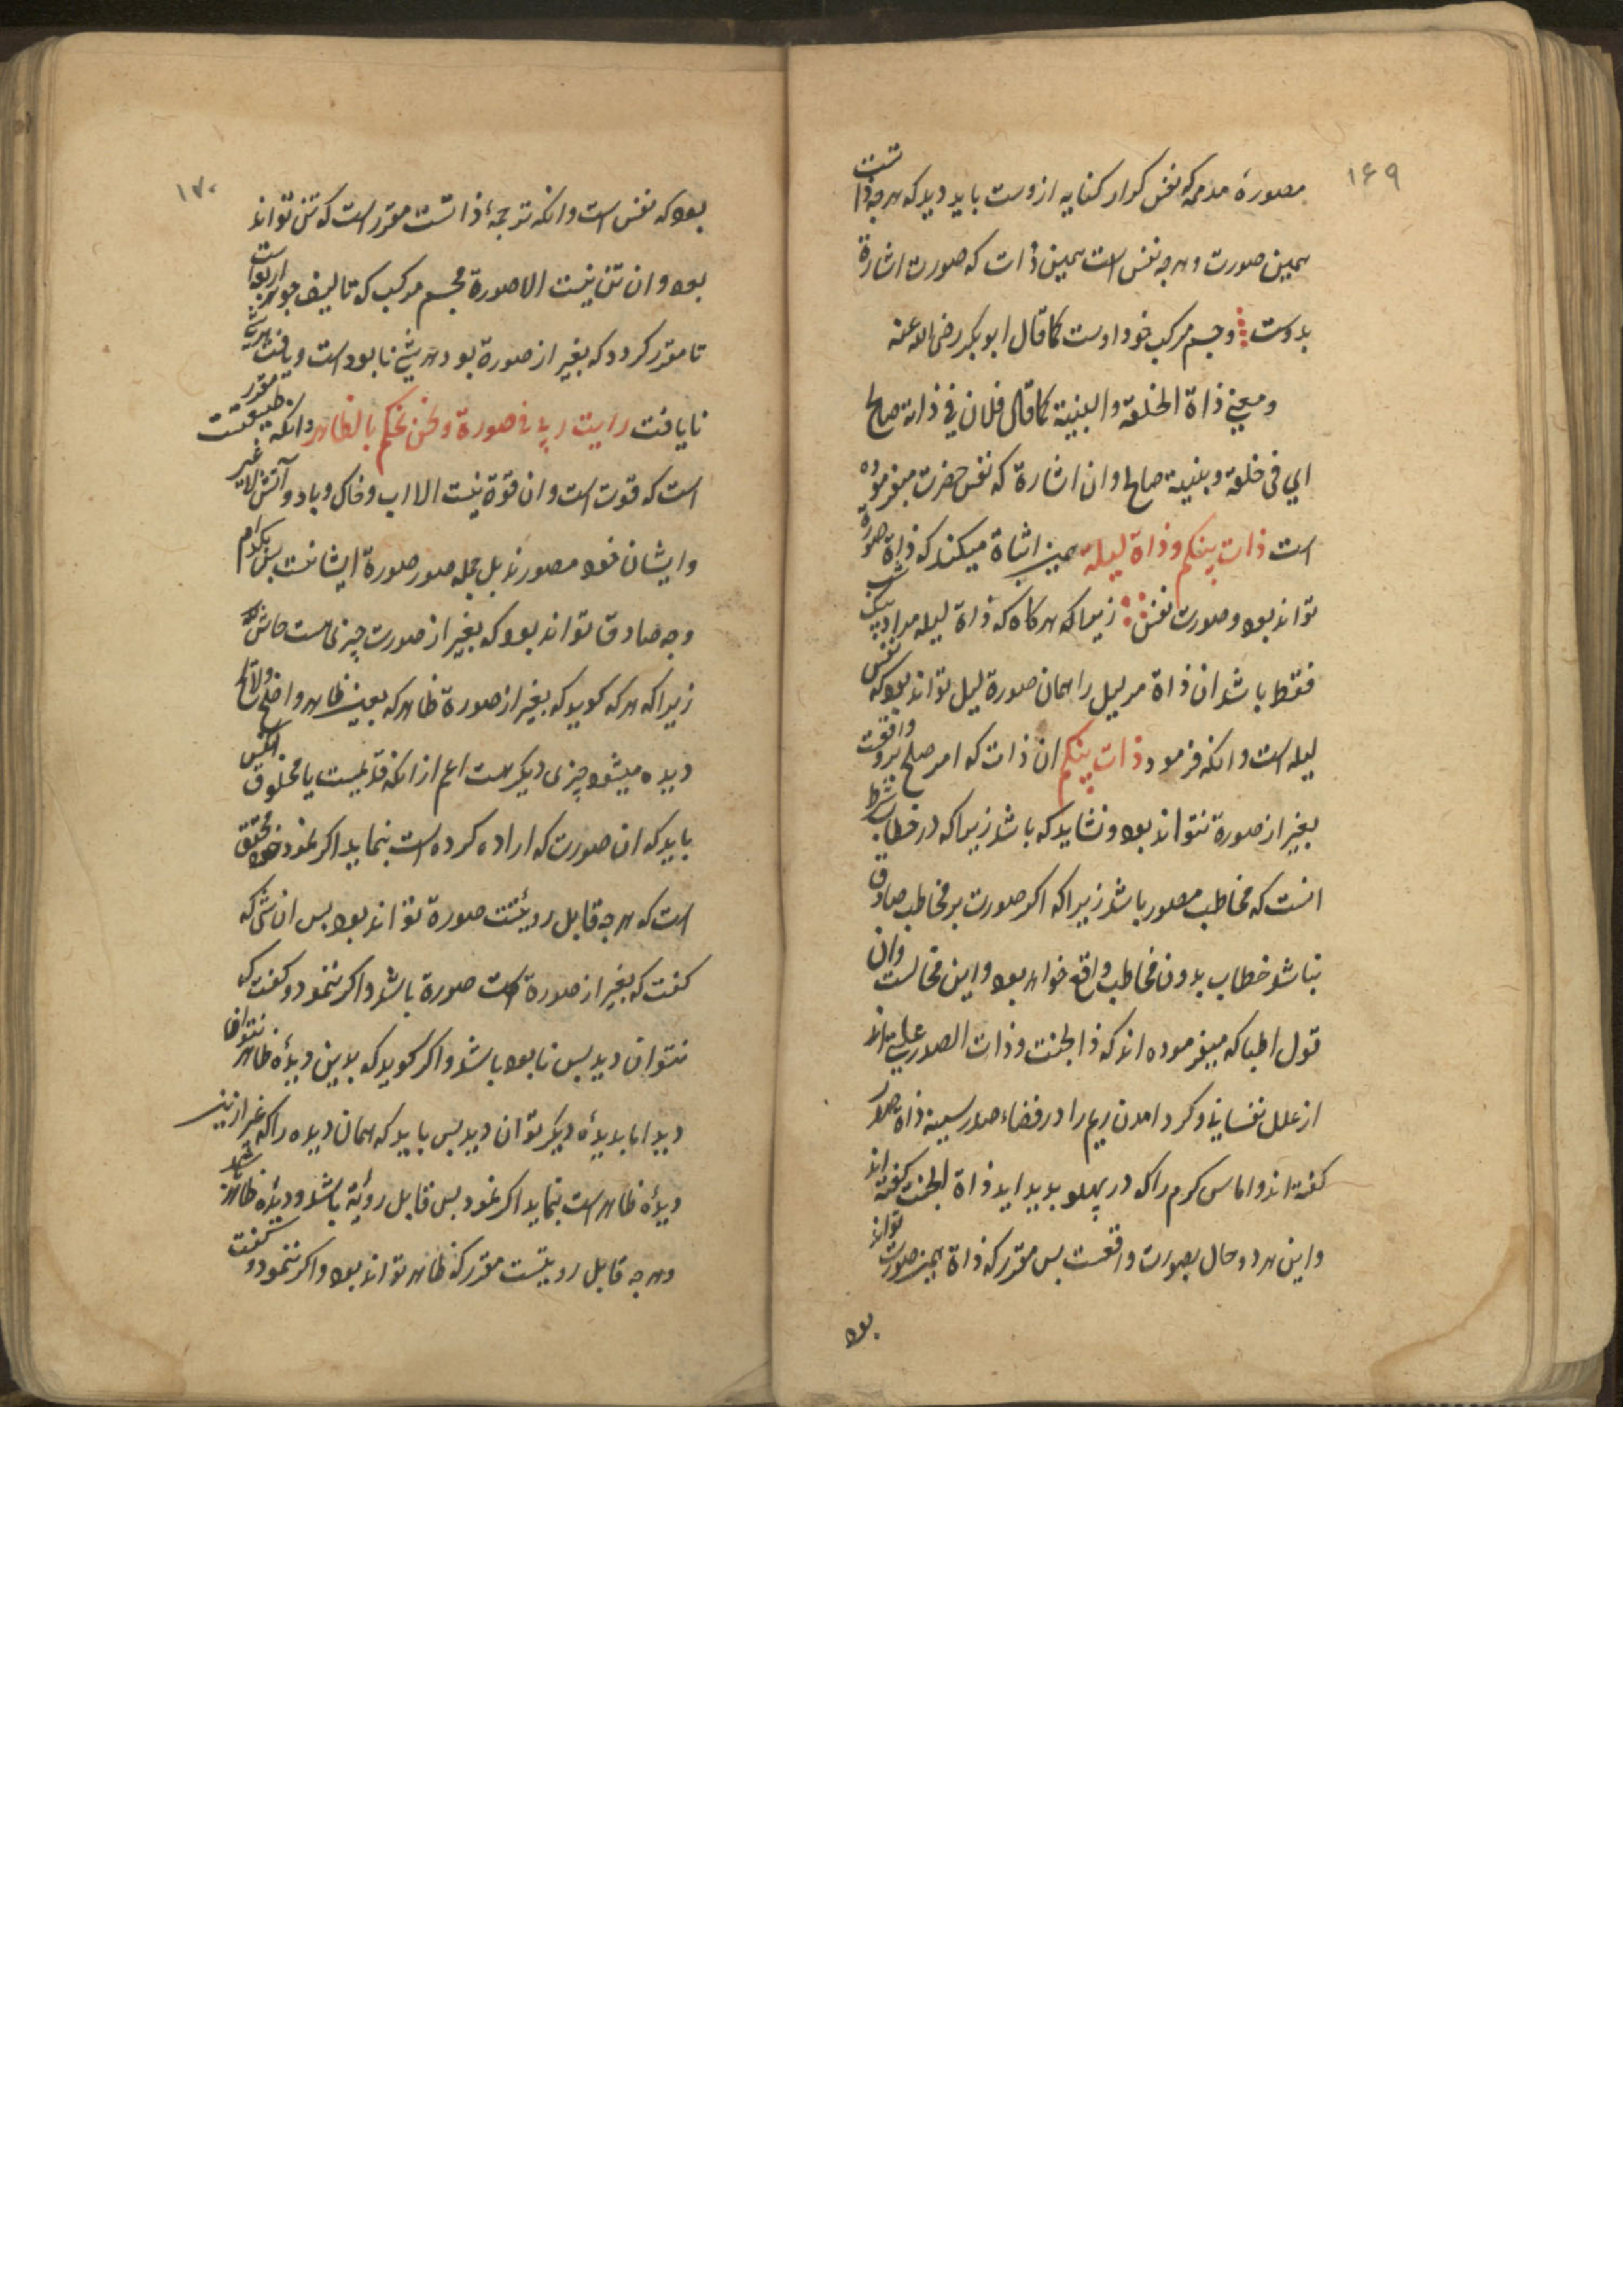 ۱۶۹
مصورهٔ مدمه که نفس کرار کنایه ازوست باید دید که هرچه ذا تست
همین صورت وهرچه نفس است همین ذات که صورت اشارة
بدوست وجسم مرکب خود اوست کما قال ابوبکر رضی الله عنه
ومعنی ذاة الخلقة والبنیة کما قال فلان فی ذاته صالح
ای فی خلقة وبنیة صالح وان اشارة که نفس حضرت میفرموده
است ذات بینکم وذاة لیلة همین اثباة میکند که ذاة صورة
تواند بود وصورت نفس زیرا که هرکاه که ذاة لیله مراد یک شب
فقط باشد ان ذاة مر لیل را همان صورة لیل تواند بود که نفس
لیله است وانکه فرمود ذات بینکم ان ذات که امر صلح برو واقعست
بغیر از صورة نتواند بود ونشاید که باشد زیرا که در خطاب شرط
انست که مخاطب مصور باشد زیرا که اکر صورت بر مخاطب صادق
نباشد خطاب بدون مخاطب واقع خواهد بود واین محالست وان
قول اطبا که میفرموده اند که ذا لجنت وذات الصدر علتی اند
از علل نفسانی وکرد امدن ریم را در فضاء صدر سینه ذاة صدر
کفته اند واماس کرم را که در پهلو بدید اید ذاة الجنت کفته اند
واین هر دو حال بصورت واقعست بس مقرر که ذاة همین صورت تواند
بود
۱۷۰
بود که نفس است وانکه ترجمهٔ ذا تست مقرر است که تن تواند
بود وان تن نیست الا صورة مجسم مرکب که تالیف جواهر اربع است
تا مقرر کردد که بغیر از صورة بود هر شیٔ نابود است ویافت هر شیٔ
نایافت رایت ربی فی صورة ونحن نحکم بالظاهر وانکه طبیعتست مقرر
است که قوت است وان قوة نیست الا اب وخاک وباد وآتش لا غیر
وایشان خود مصورند بل جمله صور صورة ایشانست بس بکدام
وجه صادق تواند بود که بغیر از صورت چیزی هست حاش
زیرا که هرکه کوید که بغیر از صورة ظاهر که بعین ظاهر واضح ولایح
دیده میشود چیزی دیکر هست اعم از انکه قدیمست یا مخلوق
باید که ان صورت که اراده کرده است بنماید اکر نمود خود محقق
است که هرچه قابل رویتست صورة تواند بود بس ان شی که
کفت که بغیر از صورة است صورة باشد واکر ننمود وکفت که
نتوان دید بس نابود باشد واکر کوید که بدین دیدهٔ ظاهر نتوان
دید اما بدیدهٔ دیکر توان دید بس باید که همان دیده را که غیر ازین
دیدهٔ ظاهر است بنماید اکر نمود بس قابل رویة باشد ودیدهٔ ظاهر باشد
وهرچه قابل رویتست مقرر که ظاهر تواند بود واکر ننمود وکفت